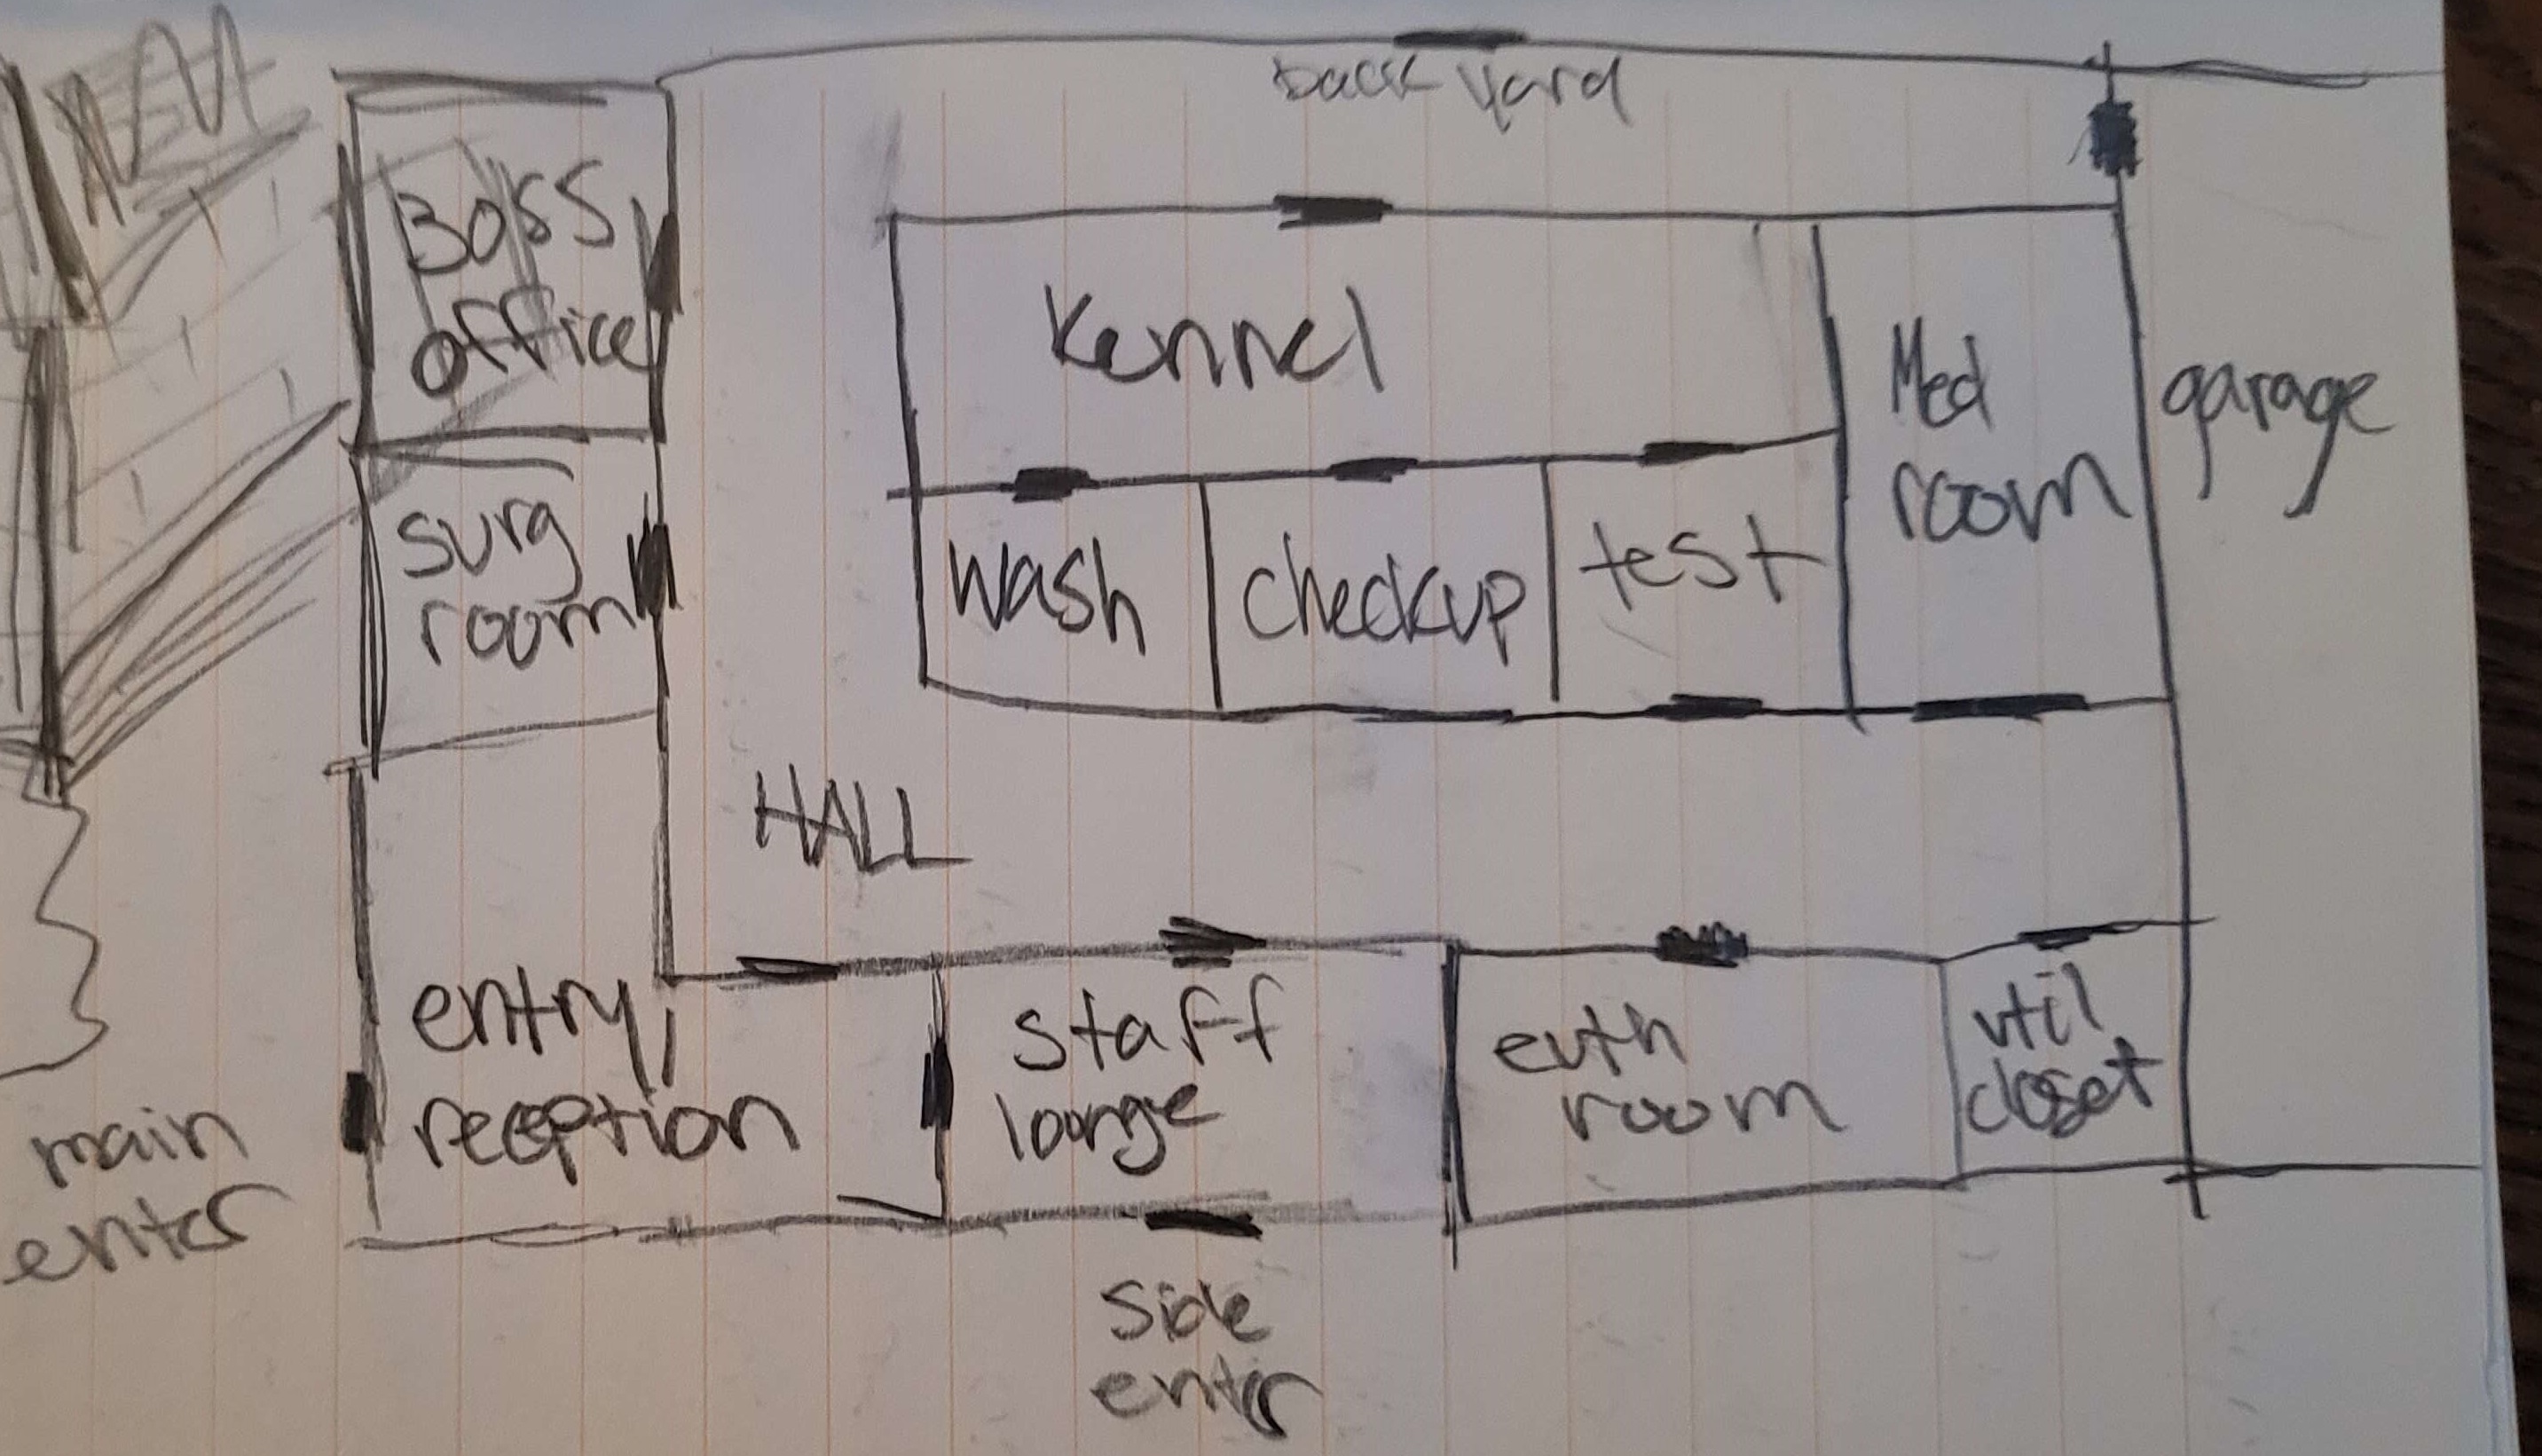 back yard
Boss
office
Kennel
Med
room
garage
surg
room
wash
checkup
test
HALL
entry/
reception
staff
lounge
euth
room
util
closet
main
enter
side
enter